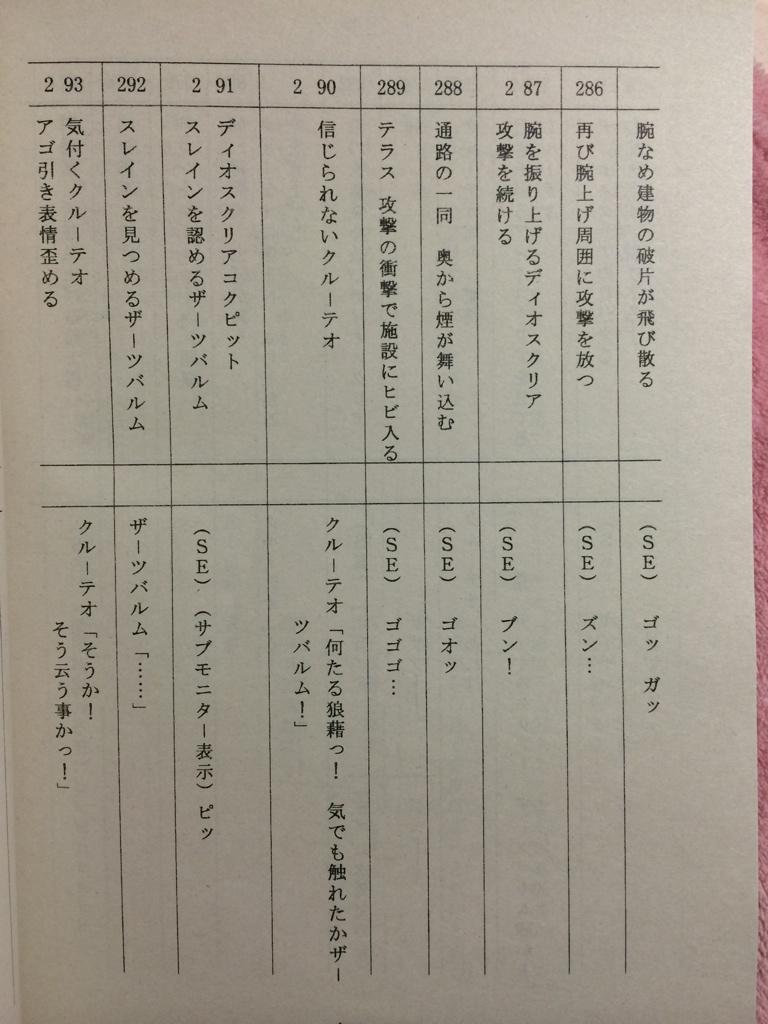 腕なめ建物の破片が飛び散る
（SE）　ゴッ　ガッ
286
再び腕上げ周囲に攻撃を放つ
（SE）　ズン…
287
腕を振り上げるディオスクリア
攻撃を続ける
（SE）　ブン！
288
通路の一同　奥から煙が舞い込む
（SE）　ゴオッ
289
テラス　攻撃の衝撃で施設にヒビ入る
（SE）　ゴゴゴ…
290
信じられないクルーテオ
クルーテオ「何たる狼藉っ！　気でも触れたかザー
ツバルム！」
291
ディオスクリアコクピット
スレインを認めるザーツバルム
（SE）（サブモニター表示）ピッ
292
スレインを見つめるザーツバルム
ザーツバルム「……」
293
気付くクルーテオ
アゴ引き表情歪める
クルーテオ「そうか！
そう云う事かっ！」